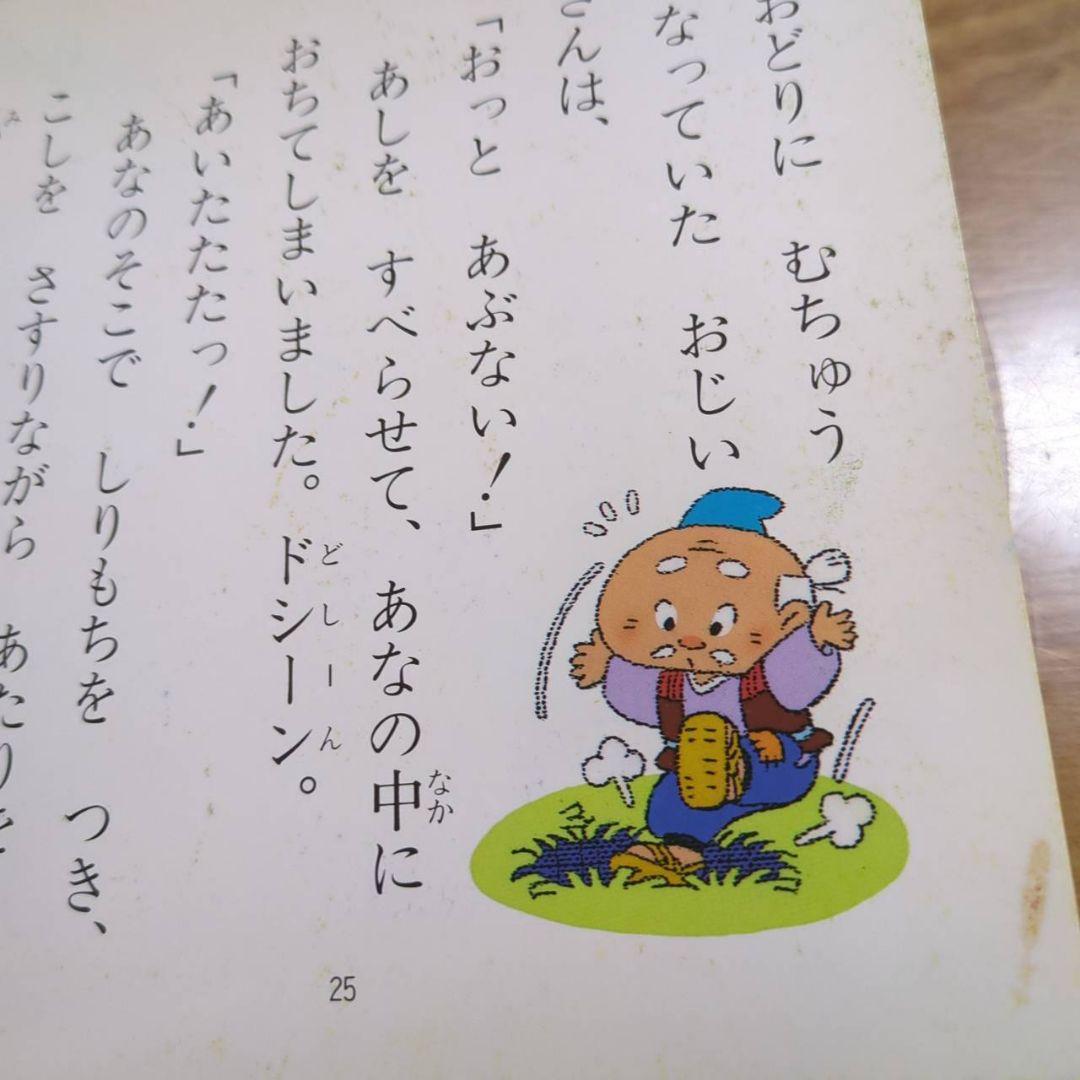 おどりに　むちゅう
なっていた　おじい
さんは、
「おっと　あぶない！」
あしを　すべらせて、あなの中に
なか
おちてしまいました。ドシーン。
どしーん
「あいたたたっ！」
あなのそこで　しりもちを　つき、
こしを　さすりながら　あたりを
み
25